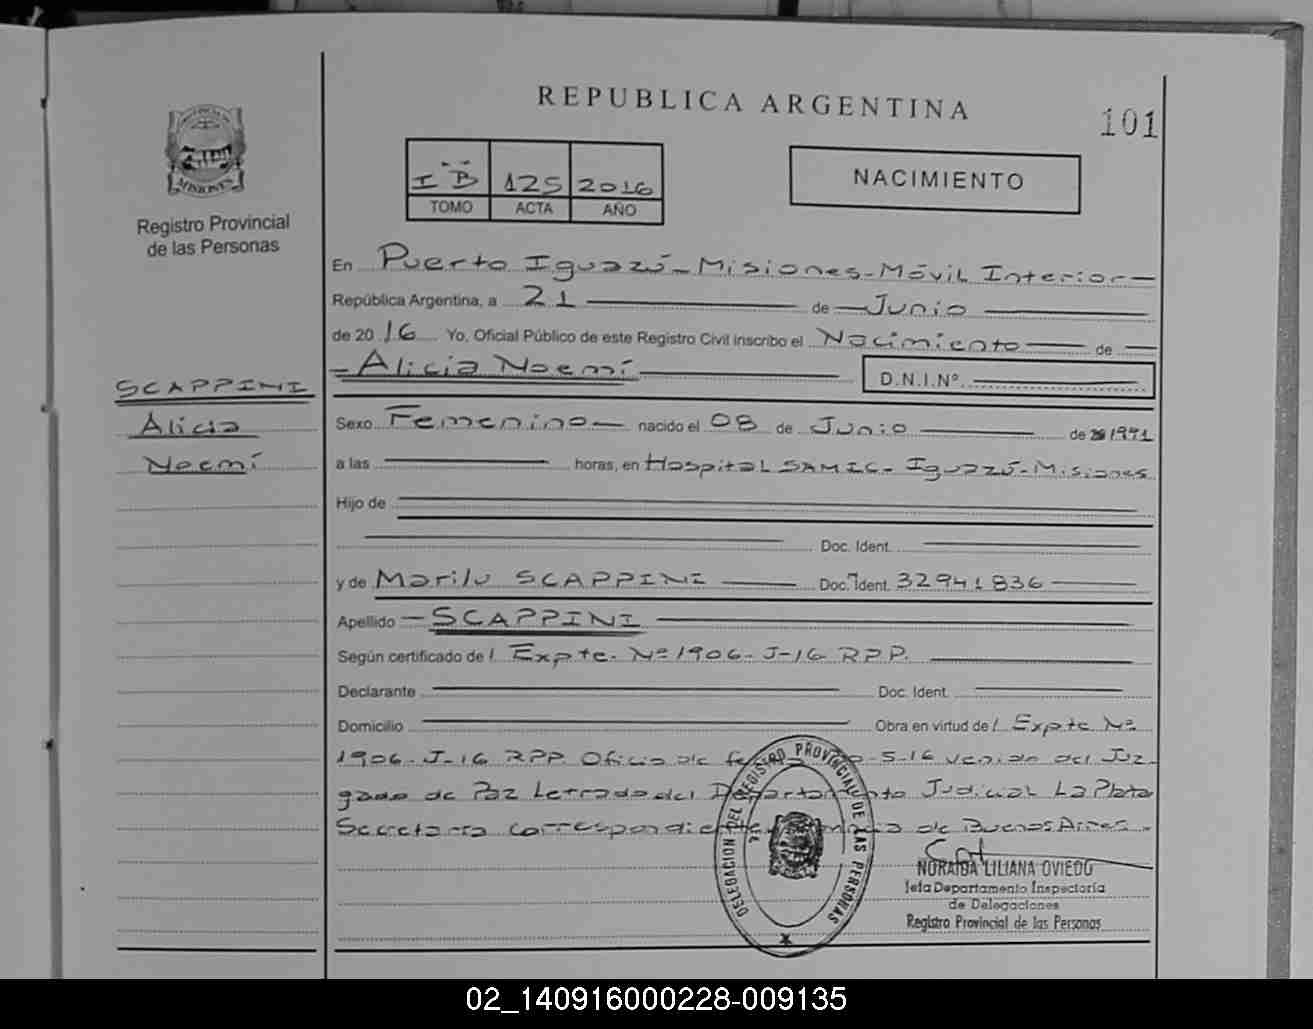 REPUBLICA ARGENTINA
101
PROVINCIA DE
MISIONES
Registro Provincial
de las Personas
I B 125 2016
TOMO ACTA AÑO
NACIMIENTO
En Puerto Iguazú - Misiones - Móvil Interior
República Argentina, a 21 de Junio
de 2016 Yo, Oficial Público de este Registro Civil inscribo el Nacimiento de
Alicia Noemí D.N.I.Nº
SCAPPINI
Alicia
Noemí
Sexo Femenino nacido el 08 de Junio de 1991
a las horas, en Hospital SAMIC - Iguazú - Misiones
Hijo de
Doc. Ident.
y de Marilu SCAPPINI Doc. Ident. 32941836
Apellido SCAPPINI
Según certificado de l Expte. Nº 1906-J-16 RPP.
Declarante Doc. Ident.
Domicilio Obra en virtud de l Expte Nº
1906-J-16 RPP. Oficio de -5-16 venido del Juz-
gado de Paz Letrado del Departamento Judicial La Plata
Secretaria correspondiente de Buenos Aires.-
DELEGACION DEL REGISTRO PROVINCIAL DE LAS PERSONAS
NORAIDA LILIANA OVIEDO
Jefa Departamento Inspectoría
de Delegaciones
Registro Provincial de las Personas
02_140916000228-009135